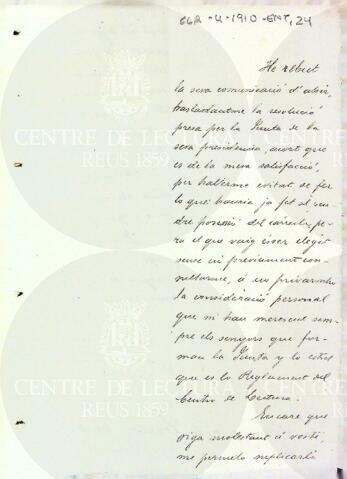 CLR-4-1910-ENT, 24
He rebut
la seva comunicació d'ahir,
traslladantme la resolució
presa per la Junta de la
seva presidencia, acort que
es de la meva satisfacció,
per haberme evitat de fer
lo que hauria ja fet al
posesió del càrrech, pe-
ra el que vaig esser elegit
sense ni previament con-
sultarme, á no privarmho
la consideració personal
que m'han merescut sem-
pre els senyors que for-
man la Junta y lo estat
que es lo Reglament del
Centro de Lectura.
Encare que
siga molestant á vosté,
me permeto suplicarli
CENTRE DE LECTURA
REUS 1859
CENTRE DE LECTURA
REUS 1859